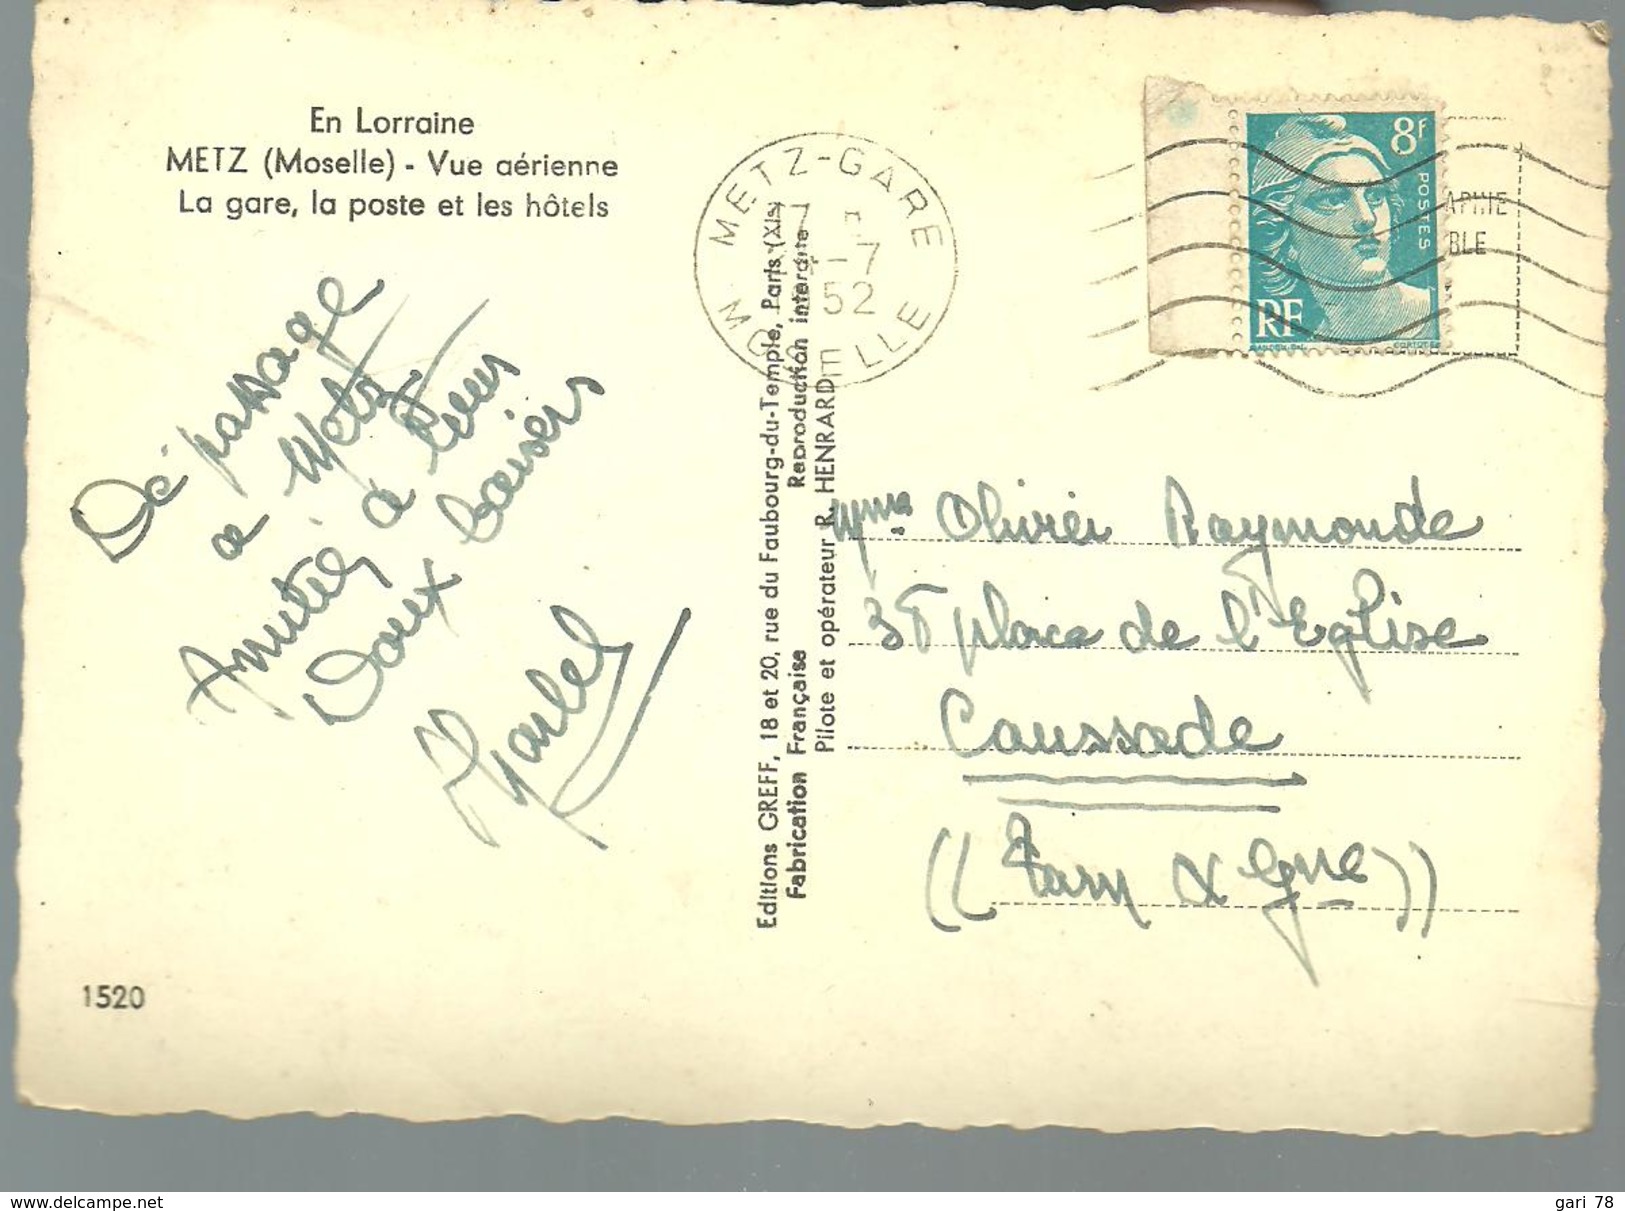 En Lorraine
METZ (Moselle) - Vue aérienne
La gare, la poste et les hôtels
De passage
a Metz
Amitiés a tous
Doux baisers
1520
Editions GREFF, 18 et 20, rue du Faubourg-du-Temple, Paris (XIe)
Fabrication Française Reproduction interdite
Pilote et opérateur R. HENRARD
METZ-GARE
7
-7
52
MOSELLE
8F
POSTES
RF
APHIE
BLE
Mme Olivier Raymonde
place de l'Eglise
Caussade
((Tarn & Gne))
www.delcampe.net
gari 78